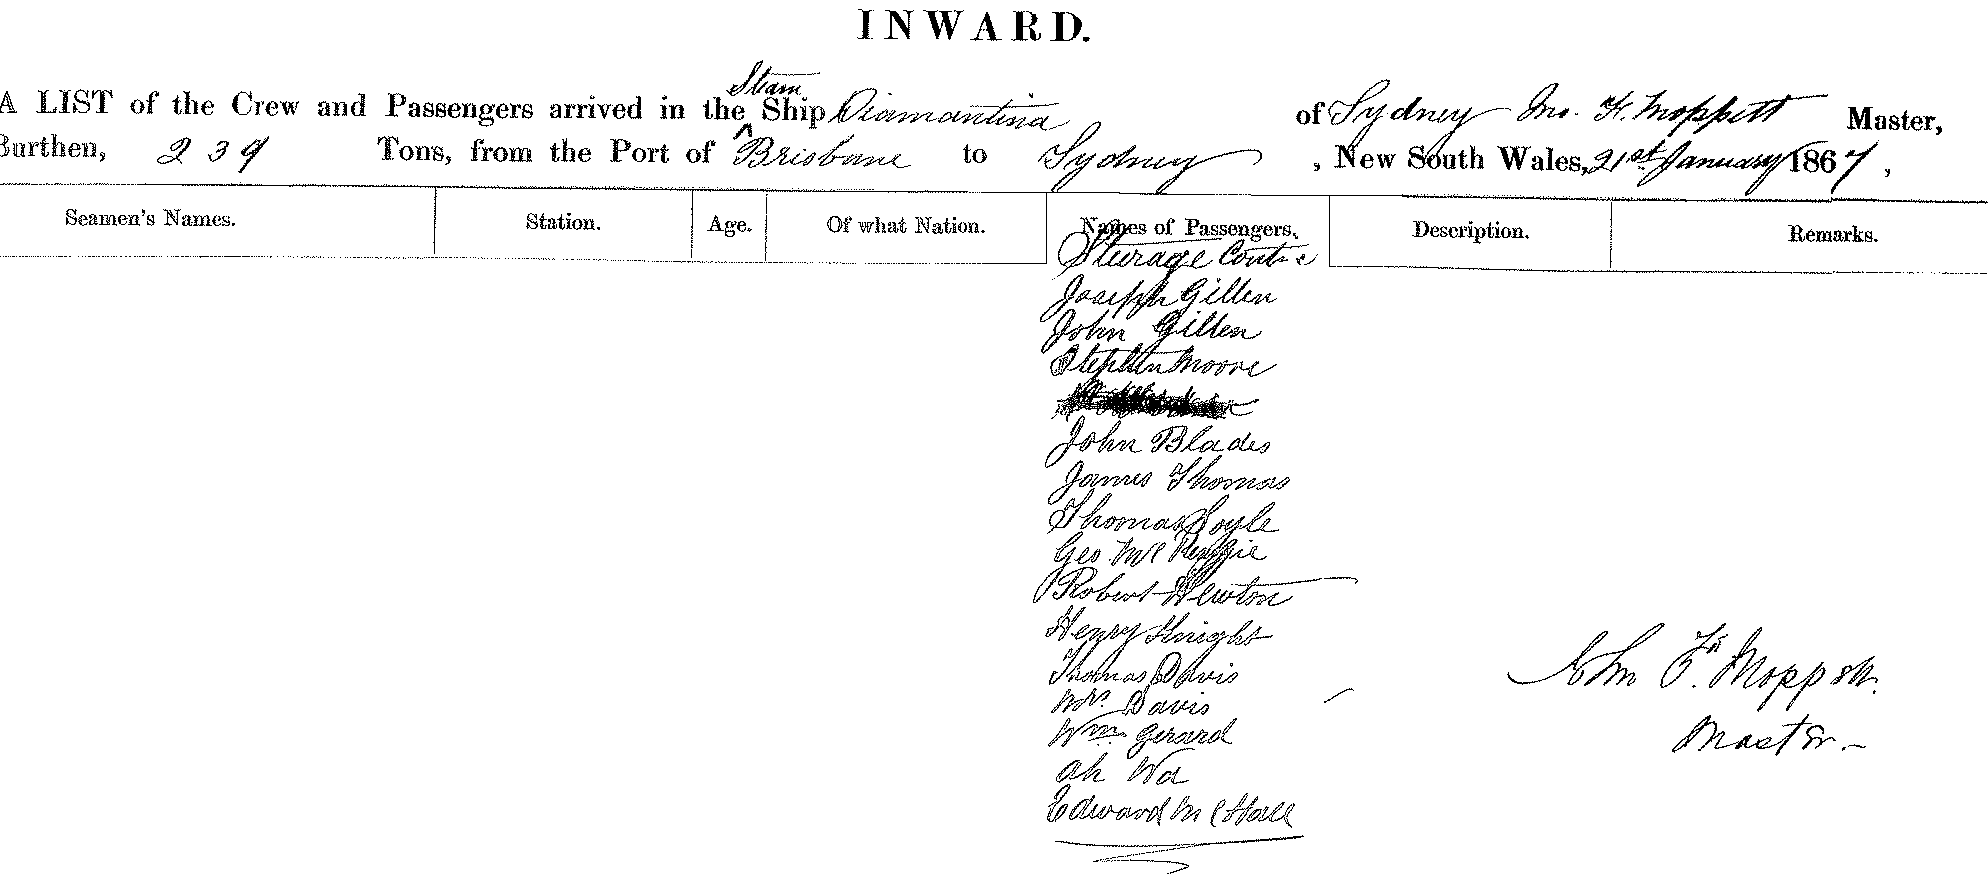 INWARD.
Steam
A LIST of the Crew and Passengers arrived in the ^ Ship Diamantina of Sydney Jno. F. Moppett Master,
Burthen, 239 Tons, from the Port of Brisbane to Sydney, New South Wales, 21st January 1867,
Seamen's Names. Station. Age. Of what Nation. Names of Passengers. Description. Remarks.
Steerage Cont
Joseph Gillen
John Gillen
Stephen Moore
John Blades
James Thomas
Thomas Doyle
Geo Mc
Robert Newton
Henry Knight
Thomas Davis
Mrs Davis
Wm Gerard
Ah Wa
Edward McHale
John Fk Moppett.
Master.-